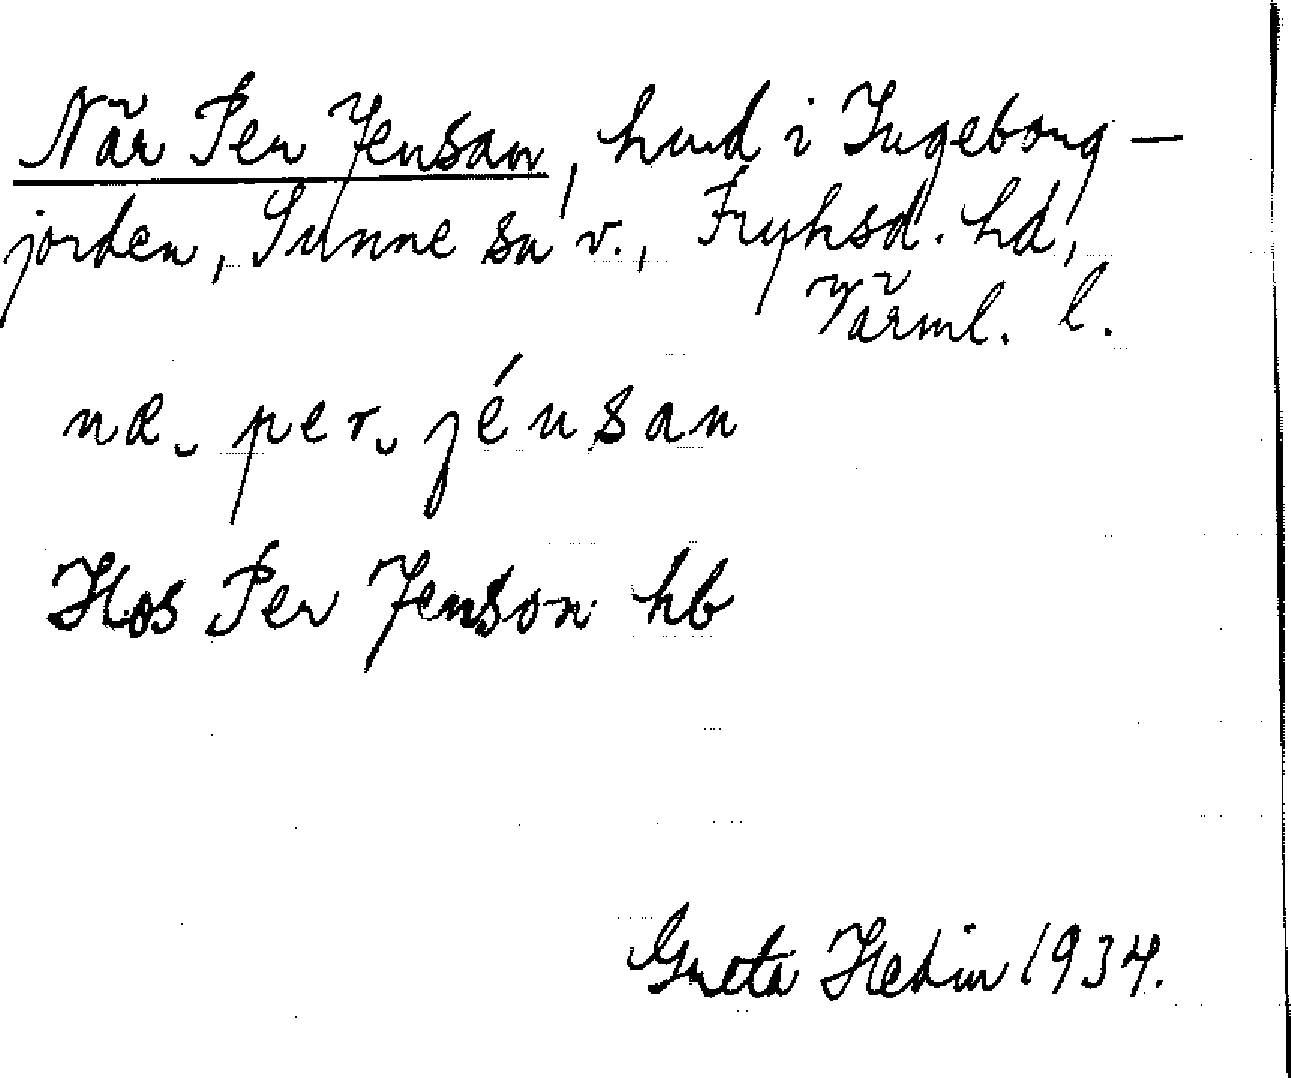 När Per Jensan, hmd i Ingeborg-
jorden, Sunne sn v., Fryksd. hd,
Värml. l.
næ˯ per˯ jénsan
Hos Per Jenson hb
Greta Hedin 1934.